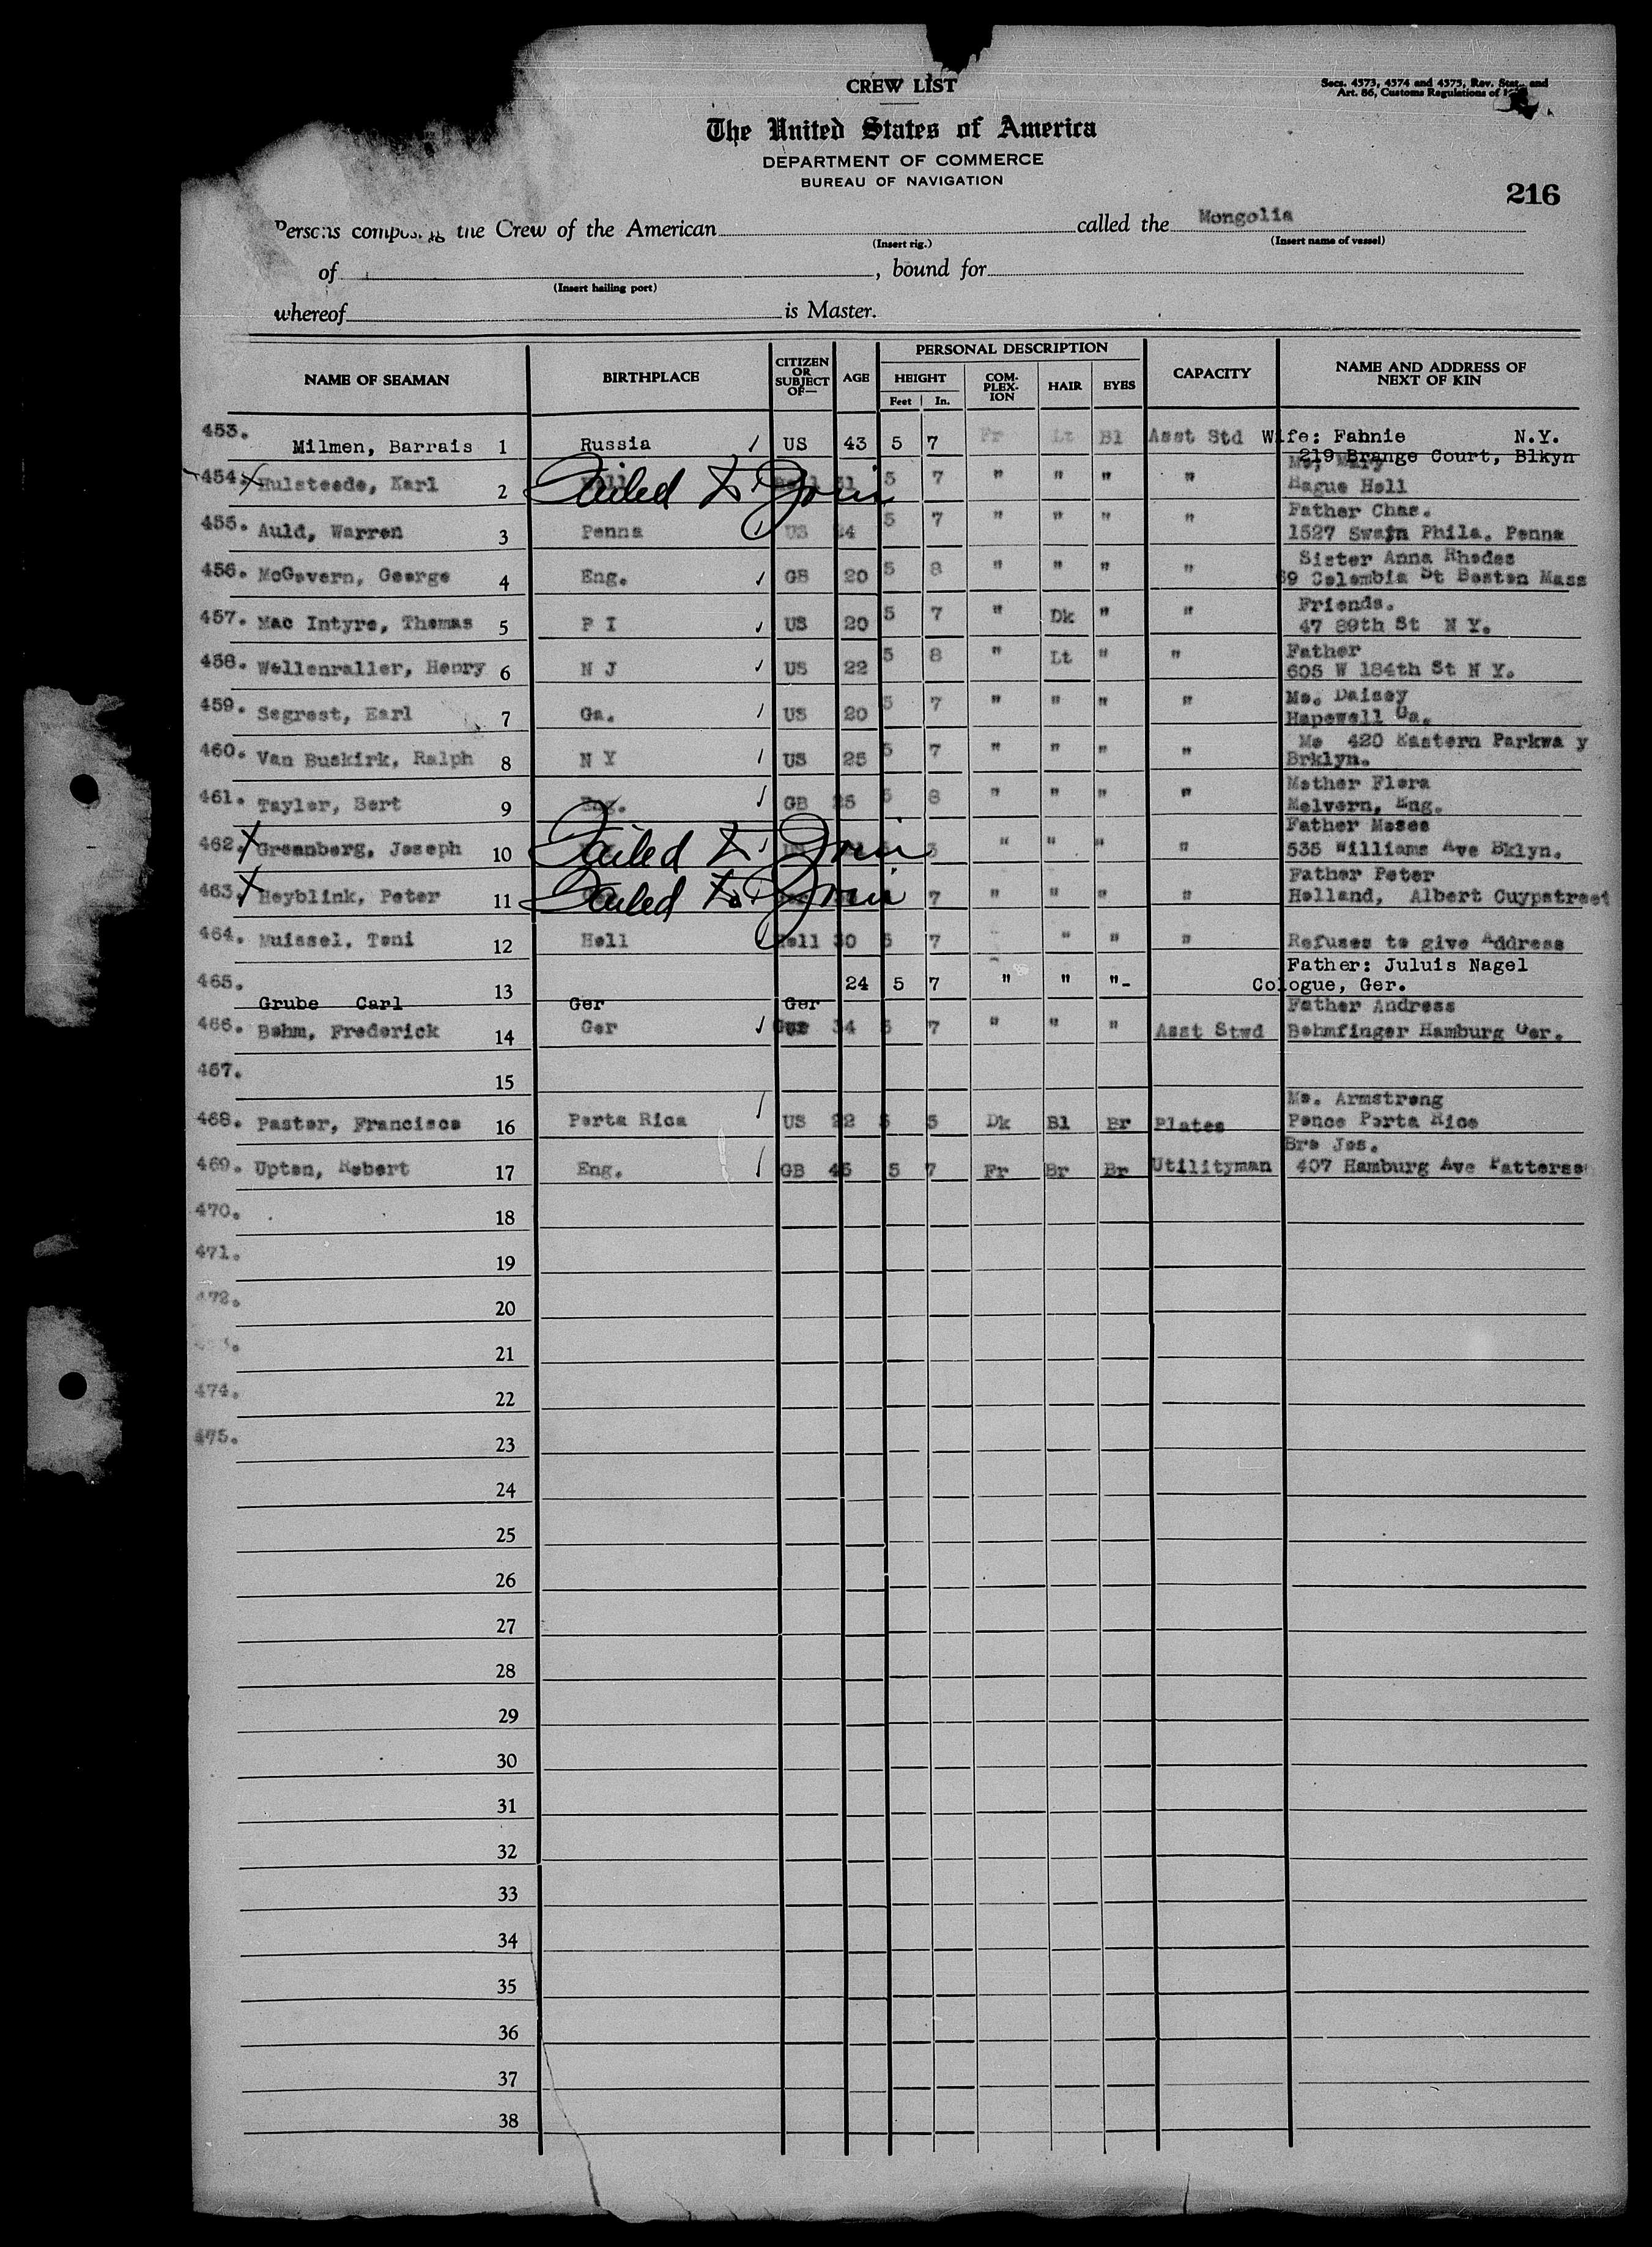 CREW LIST
Secs. 4573, 4574 and 4575, Rev. Stat. and
Art. 86, Customs Regulations of
The United States of America
DEPARTMENT OF COMMERCE
BUREAU OF NAVIGATION
216
Persons composing the Crew of the American called the Mongolia
(Insert rig.) (Insert name of vessel)
of , bound for
(Insert hailing port)
whereof is Master.
NAME OF SEAMAN BIRTHPLACE CITIZEN OR SUBJECT OF— AGE PERSONAL DESCRIPTION HEIGHT Feet In. COM-PLEX-ION HAIR EYES CAPACITY NAME AND ADDRESS OF NEXT OF KIN
453. Milmen, Barrais 1 Russia ✓ US 43 5 7 Fr Lt Bl Asst Std Wife: Fahnie N.Y.
219 Brange Court, Blkyn
454. Hulsteede, Karl 2 Failed to Join 31 5 7 " " " " Mo, Mary
Hague Holl
455. Auld, Warren 3 Penna ✓ US 24 5 7 " " " " Father Chas.
1527 Swain Phila. Penna
456. McGovern, George 4 Eng. ✓ GB 20 5 8 " " " " Sister Anna Rhodes
69 Colombia St Boston Mass
457. Mac Intyre, Thomas 5 P I ✓ US 20 5 7 " Dk " " Friends.
47 89th St N Y.
458. Wellenraller, Henry 6 N J ✓ US 22 5 8 " Lt " " Father
605 W 184th St N Y.
459. Segrest, Earl 7 Ga. ✓ US 20 5 7 " " " " Mo. Daisey
Hapewell Ga.
460. Van Buskirk, Ralph 8 N Y ✓ US 25 5 7 " " " " Mo 420 Eastern Parkwa y
Brklyn.
461. Tayler, Bert 9 Eng. ✓ GB 25 5 8 " " " " Mother Flora
Melvern, Eng.
462. Greenberg, Joseph 10 Failed to Join US 3 " " " " Father Moses
535 Williams Ave Bklyn.
463. Heyblink, Peter 11 Failed to Join 7 " " " " Father Peter
Holland, Albert Cuypstreet
464. Muissel, Toni 12 Holl Holl 30 5 7 " " " Refuses to give Address
465. Grube Carl 13 Ger Ger 24 5 7 " " "- Father: Juluis Nagel
Cologue, Ger.
466. Bohm, Frederick 14 Ger ✓ 34 5 7 " " " Asst Stwd Father Andress
Bohmfinger Hamburg Ger.
467. 15
468. Paster, Francisco 16 Porta Rica ✓ US 22 5 5 Dk Bl Br Plates Mo. Armstrong
Ponce Porta Rico
469. Upton, Robert 17 Eng. ✓ GB 45 5 7 Fr Br Br Utilityman Bro Jos.
407 Hamburg Ave Patterso
470. 18
471. 19
472. 20
21
474. 22
475. 23
24
25
26
27
28
29
30
31
32
33
34
35
36
37
38